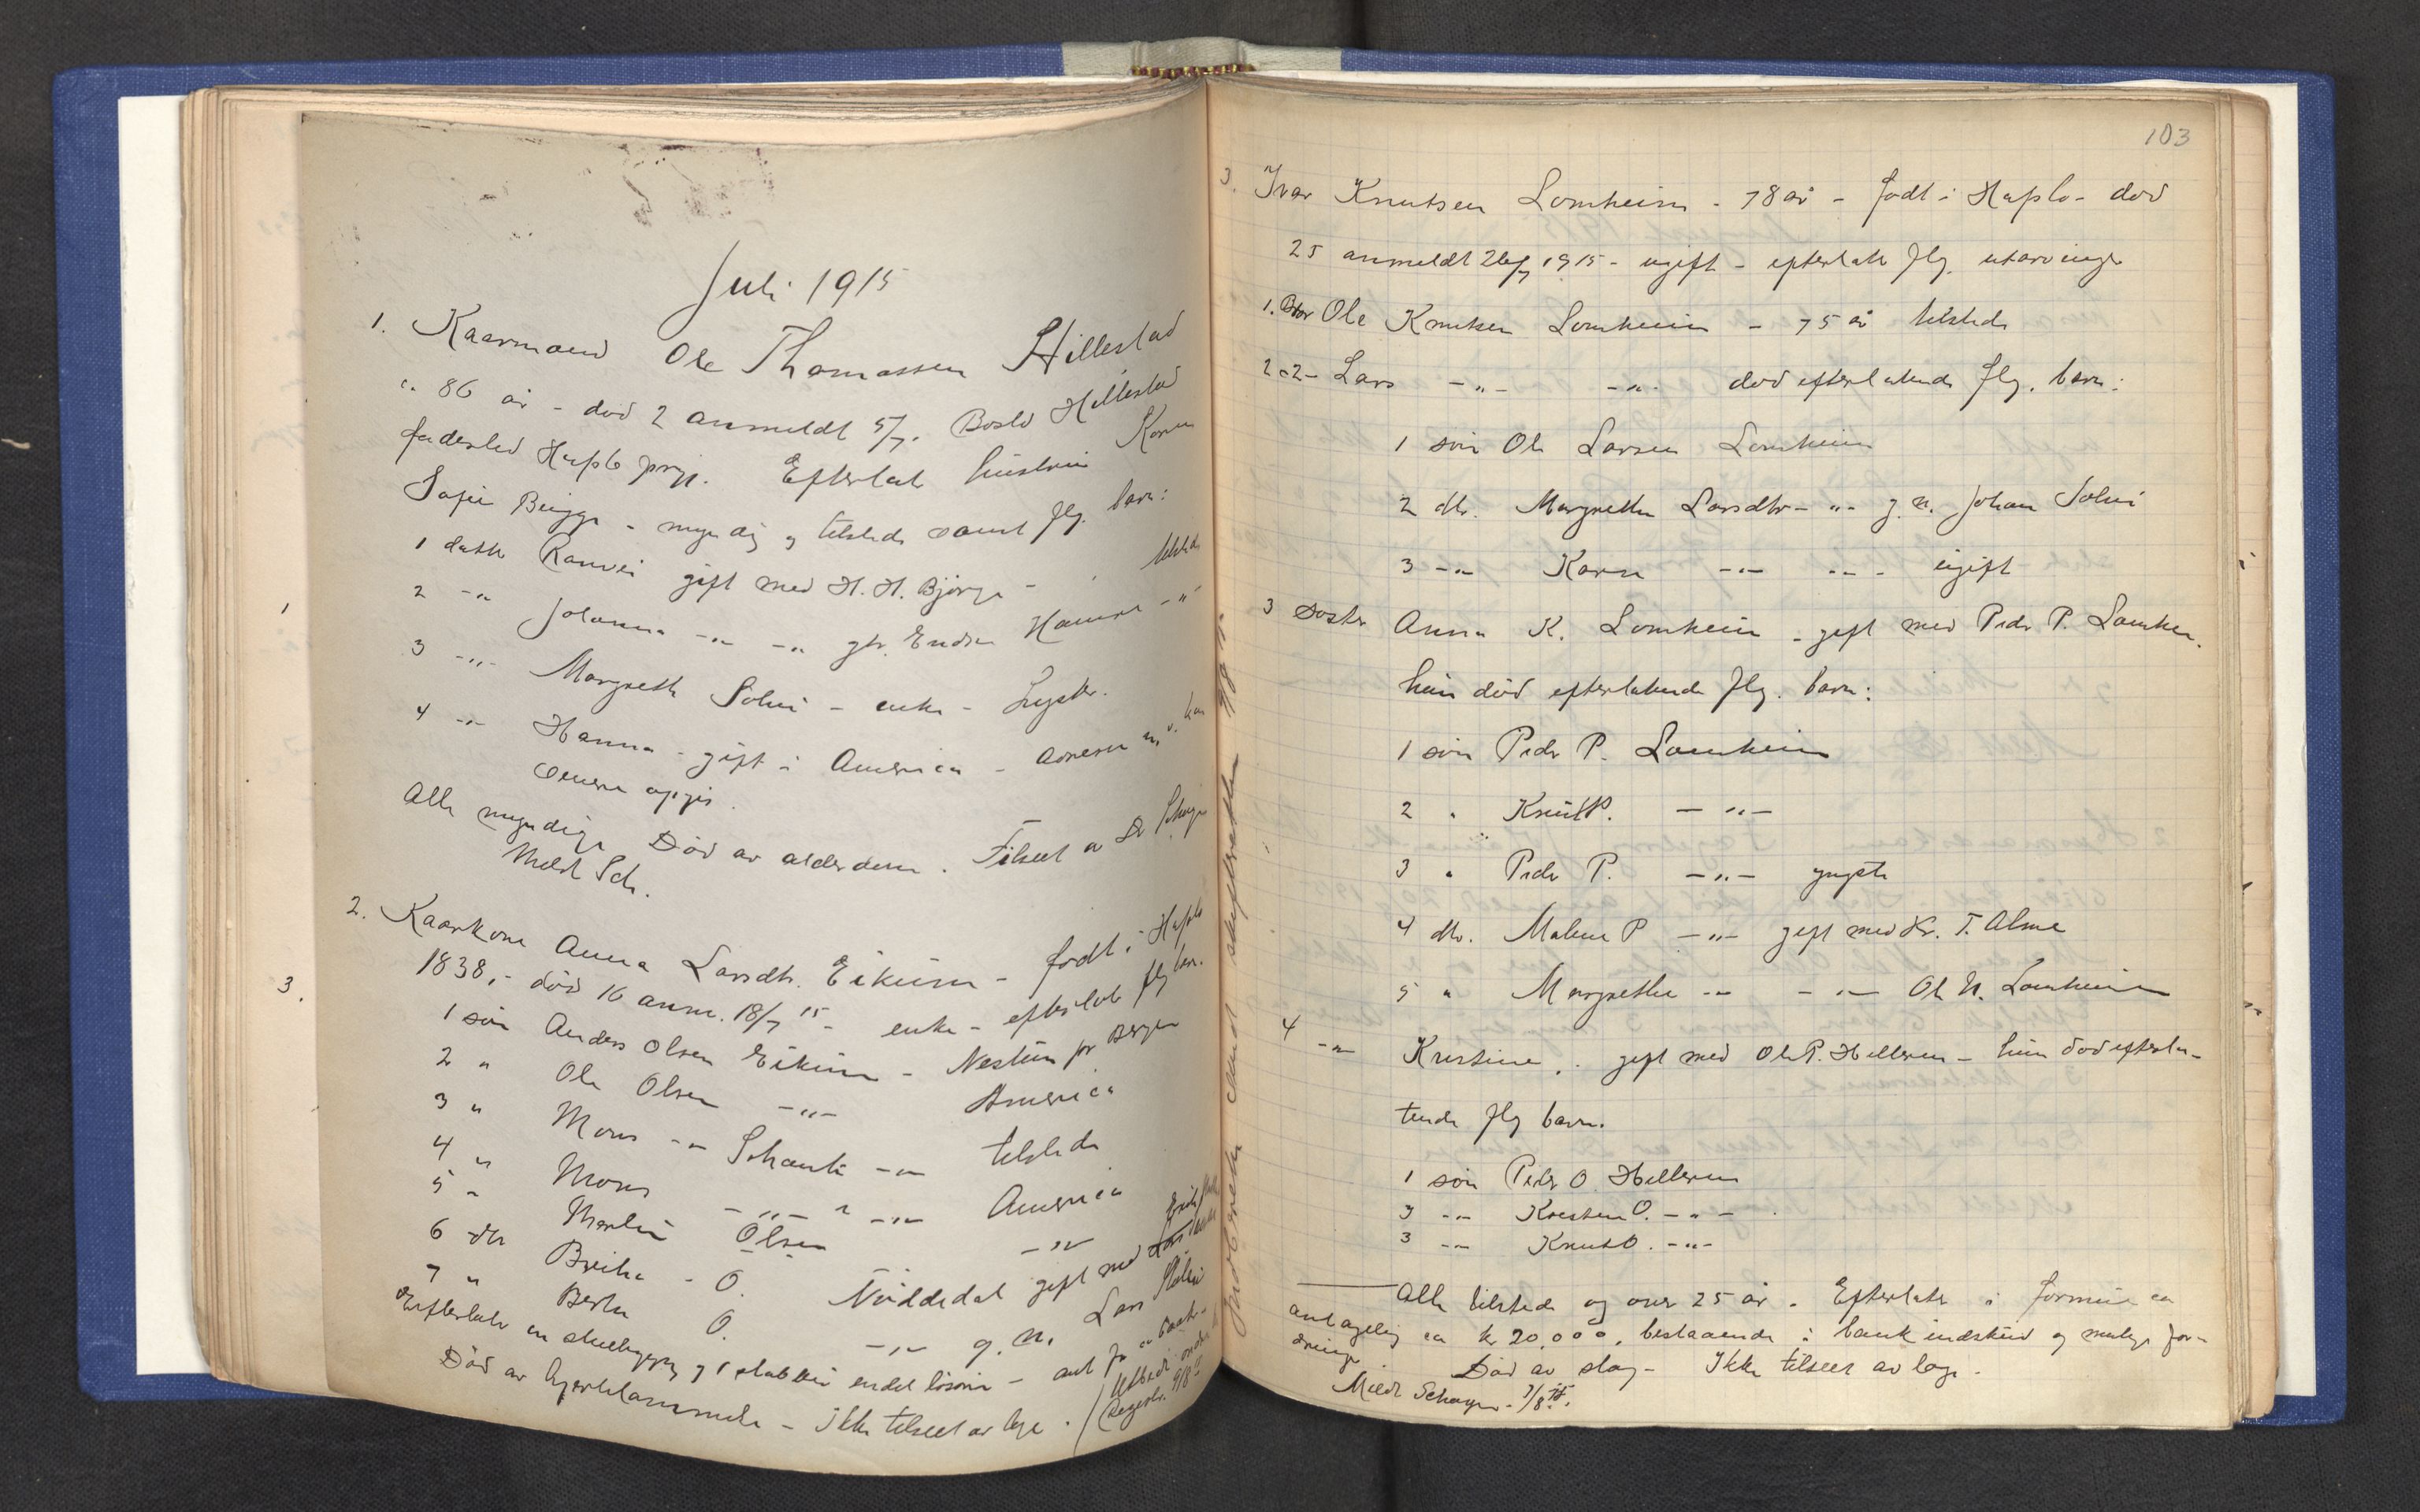 Juli 1915
1. Kaarmand Ole Thomassen Hillestad
86 år - død 2 anmeldt 5/7. Bosted Hillestad
fødested Hafslo prgj. Efterlot hustru Karen
Sofie Brügge - myndig og tilstede samt flg. barn:
1 datter Ranvei gift med H. H. Bjørge - tilstede
2 -"- Johanna -"- -"- gbr. Endre Hamre -"-
3 -"- Margrethe Solvi - enke - Lyster.
4 -"- Hanna - gift i America - adresse m.v. kan
senere opgis.
Alle myndige Død av alderdom. Tilseet av Dr Schøyer
Meldt Sch.
2. Kaarkone Anna Larsdtr. Eikum - født i Hafslo
1838, - død 16 anm. 18/7 15 - enke - efterlot flg barn.
1 søn Anders Olsen Eikum - Nestun pr Bergen
2 " Ole Olsen -"- America
3 " Mons -"- Schanke -"- tilstede
4 " Mons -"- -"- America
5 " Martin Olsen -"-
6 dtr Brita - O. Nøddedal gift med Erik
7 " Berta O. -"- g. m. Lars
Efterlot en stuebygning og 1 stabbur endel løsøre - ant
Død av hjertelammelse - ikke tilseet av læge.
Registr. 9/8
1
3.
103
3. Ivar Knutsen Lomheim - 78 år - født i Hafslo - død
25 anmeldt 26/7 1915 - ugift - efterlatt flg. utarvinger
1. Bror Ole Knutsen Lomheim - 75 år tilstede
2 -"- Lars -"- -"- død efterlatende flg. barn:
1 søn Ole Larsen Lomheim
2 dtr. Margrethe Larsdtr -"- g. m. Johan Solvi
3 -"- Karen -"- -"- ugift
3 søster Anna K. Lomheim - gift med Peder P. Lomheim.
hun død efterlatende flg. barn:
1 søn Peder P. Lomheim
2 " Knut P. -"-
3 " Peder P. -"- yngste
4 dtr. Malene P -"- gift med Kr. T. Alme
5 " Margrethe -"- -"- Ole N. Lomheim
4 -"- Kristine . gift med Ole P. Helleren - hun død efterla-
tende flg barn.
1 søn Peder O. Helleren
3 -"- Kristen O. -"-
3 -"- Knut O. -"-
Alle tilstede og over 25 år. Efterlatt i formue en
antagelig ca kr 20,000, bestaaende i bankindskud og mulige for-
dringer. Død av slag - Ikke tilseet av læge.
Meldt Schøyer - 7/8 15.